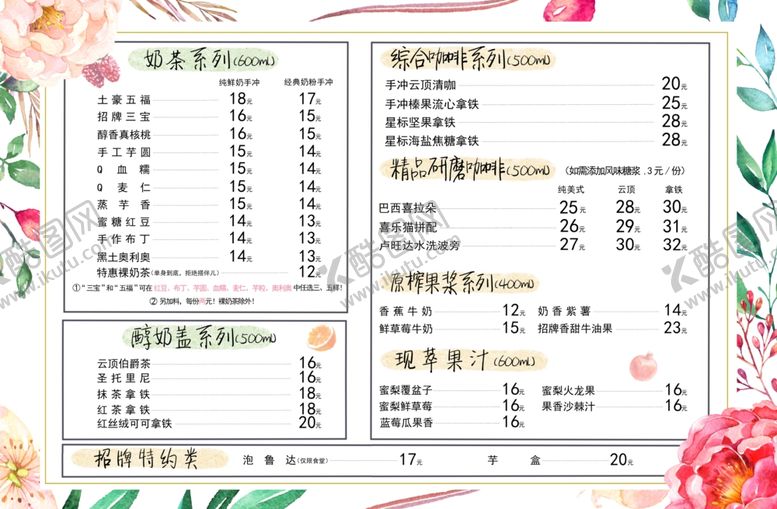 奶茶系列(600ml)
纯鲜奶手冲 经典奶粉手冲
土豪五福 18元 17元
招牌三宝 16元 15元
醇香真核桃 16元 15元
手工芋圆 15元 14元
Q血糯 15元 14元
Q麦仁 15元 14元
蒸芋香 15元 14元
蜜糖红豆 14元 13元
手作布丁 14元 13元
黑土奥利奥 14元 13元
特惠裸奶茶(单身到底,拒绝搭伴儿) 12元
①“三宝”和“五福”可在红豆、布丁、芋圆、血糯、麦仁、芋粒、奥利奥中任选三、五样!
②另加料,每份两元!裸奶茶除外!
醇奶盖系列(500ml)
云顶伯爵茶 16元
圣托里尼 16元
抹茶拿铁 18元
红茶拿铁 18元
红丝绒可可拿铁 20元
综合咖啡系列(500ml)
手冲云顶清咖 20元
手冲榛果流心拿铁 25元
星标坚果拿铁 28元
星标海盐焦糖拿铁 28元
精品研磨咖啡(500ml) (如需添加风味糖浆.3元/份)
纯美式 云顶 拿铁
巴西喜拉朵 25元 28元 30元
喜乐猫拼配 26元 29元 31元
卢旺达水洗波旁 27元 30元 32元
原榨果浆系列(400ml)
香蕉牛奶 12元 奶香紫薯 14元
鲜草莓牛奶 15元 招牌香甜牛油果 23元
现萃果汁(600ml)
蜜梨覆盆子 16元 蜜梨火龙果 16元
蜜梨鲜草莓 16元 果香沙棘汁 16元
蓝莓瓜果香 16元
招牌特约类 泡鲁达(仅限食堂) 17元 芋盒 20元
酷图网
www.ikutu.com
酷图网
www.ikutu.com